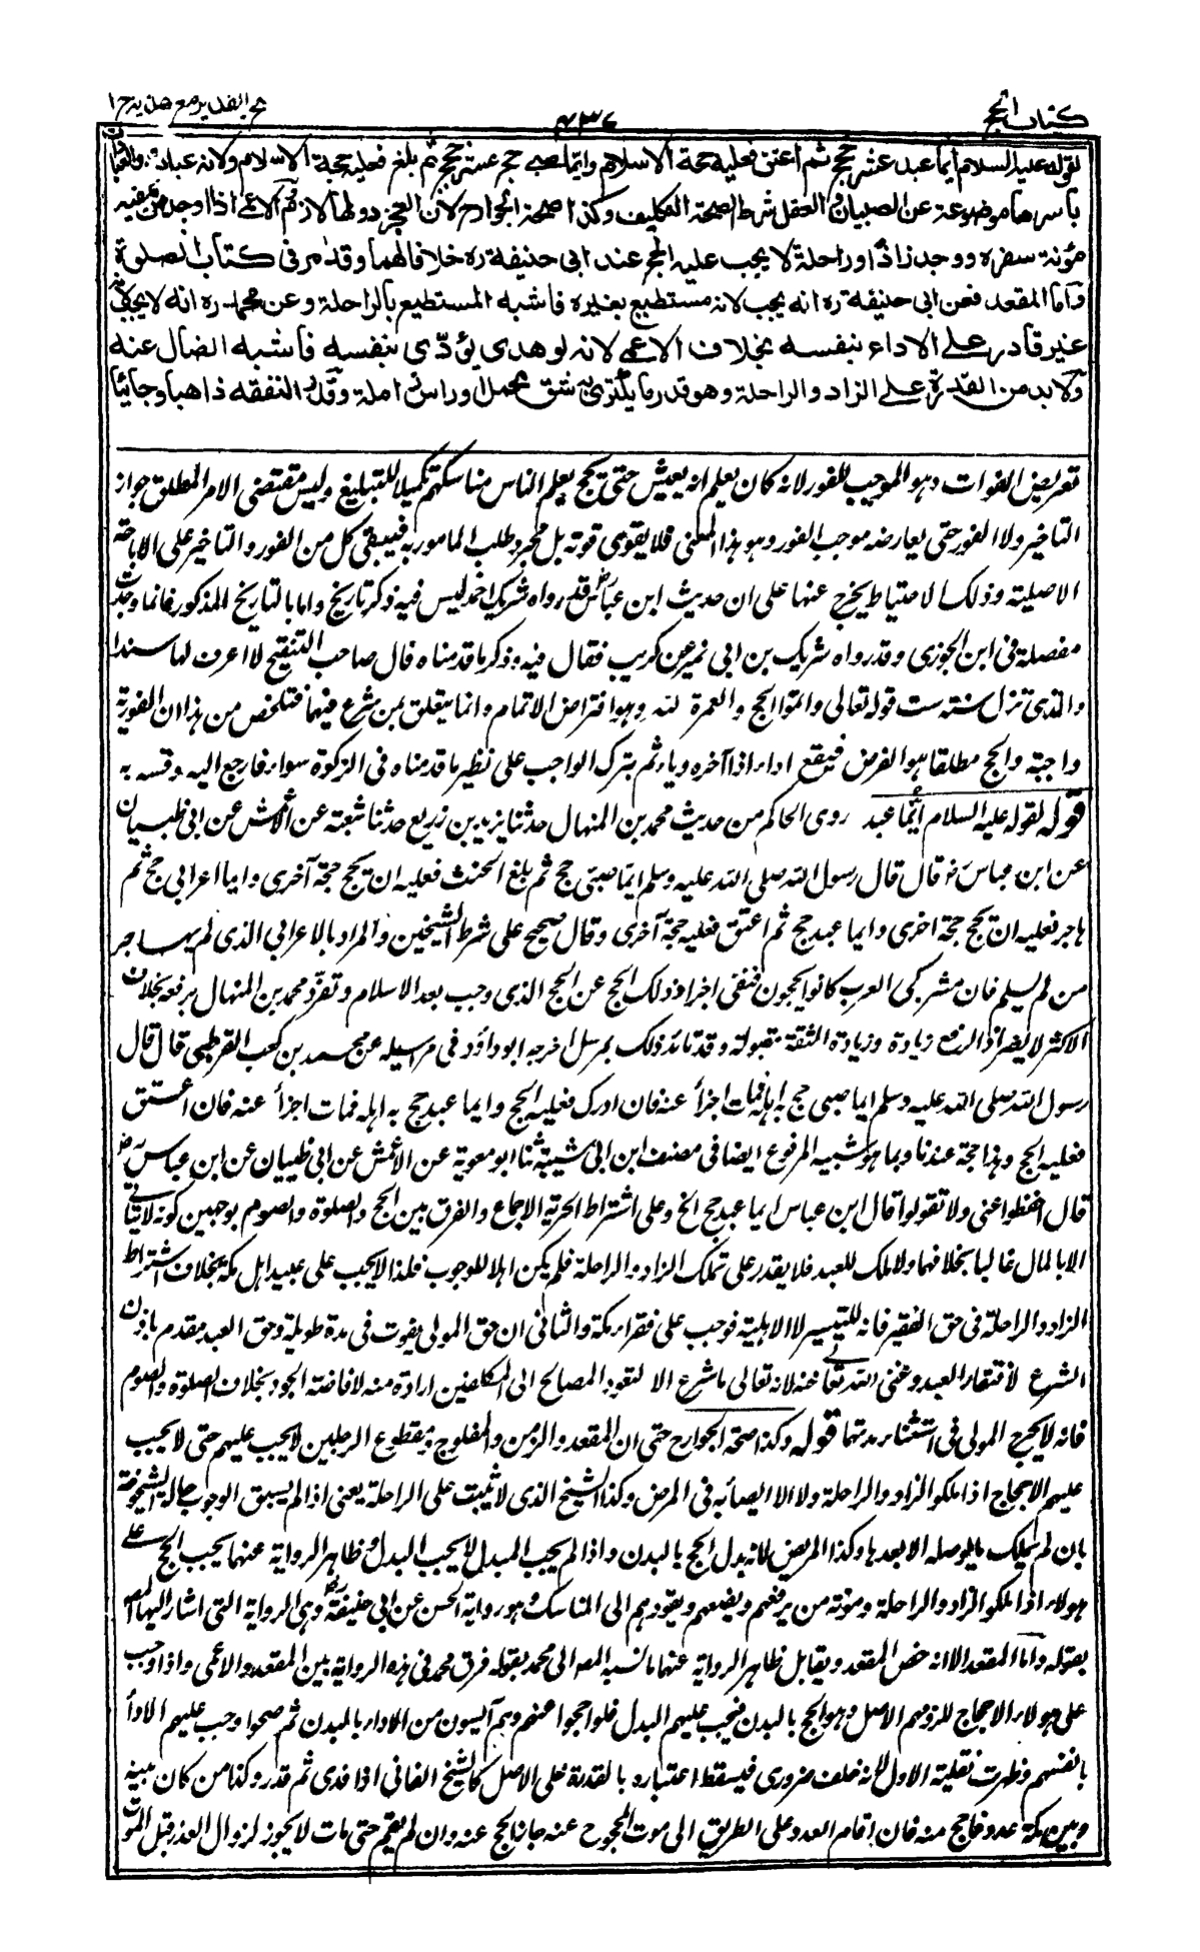 كتاب الحج
٤٣٤
فتح القدير مع هدايه ج ١
لقوله عليه السلام ايما عبد عشر حجج ثم اعتق فعليه حجة الاسلام وايما صبي حج عشر حجج ثم بلغ فعليه حجة الاسلام ولانه عبادة والعبادات
باسرها موضوعة عن الصبيان والعقل شرط لصحة التكليف وكذا صحة الجوارح لان العجز دونها لازم والاعمى اذا وجد من يكفيه
مؤنة سفره ووجد زادا وراحلة لا يجب عليه الحج عند ابي حنيفة ره خلافا لهما وقد مر في كتاب الصلوة
واما المقعد فعن ابي حنيفة ره انه يجب لانه مستطيع بغيره فاشبه المستطيع بالراحلة وعن محمد ره انه لا يجب لانه
غير قادر على الاداء بنفسه بخلاف الاعمى لانه لو هدى يؤدى بنفسه فاشبه الضال عنه
ولا بد من القدرة على الزاد والراحلة وهو قدر ما يكترى به شق محمل او راس زاملة وقدر النفقة ذاهبا وجائيا
تعريض الفوات وهو الموجب للفور لانه كان يعلم انه يعيش حتى يحج يعلم الناس مناسكهم تكميلا للتبليغ وليس مقتضى الامر المطلق جواز
التاخير ولا الفور حتى يعارضه موجب الفور وهو هذا المعنى فلا يقوى قوته بل مجرد طلب المامور به فيبقى كل من الفور والتاخير على الاباحة
الاصلية وذلك الاحتياط يخرج عنها على ان حديث ابن عباس رض قد رواه شريك احمد ليس فيه ذكر تاريخ واما بالتاريخ المذكور فانما وجدت
مفصلة في ابن الجوزي وقد رواه شريك بن ابي نمر عن كريب فقال فيه وذكر ما قدمناه قال صاحب التنقيح لا اعرف لها سندا
والذي نزل سنة ست قوله تعالى واتموا الحج والعمرة لله وهو افتراض الاتمام وانما يتعلق بمن شرع فيهما فتلخص من هذا ان الفورية
واجبة والحج مطلقا هو الفرض فيقع اداء اذا آخره ويأثم بترك الواجب على نظير ما قدمناه في الزكوة سواء فارجع اليه وقسه به
قوله لقوله عليه السلام أيما عبد روى الحاكم من حديث محمد بن المنهال حدثنا يزيد بن زريع حدثنا شعبة عن الاعمش عن ابي ظبيان
عن ابن عباس رض قال قال رسول الله صلى الله عليه وسلم ايما صبي حج ثم بلغ الحنث فعليه ان يحج حجة آخرى وايما اعرابي حج ثم
هاجر فعليه ان يحج حجة اخرى وايما عبد حج ثم اعتق فعليه حجة آخرى وقال صحيح على شرط الشيخين والمراد بالاعرابي الذي لم يهاجر
من لم يسلم فان مشركي العرب كانوا يحجون فنفى اجزاء ذلك الحج عن الحج الذي وجب بعد الاسلام وتفرد محمد بن المنهال برفعه بخلاف
الاكثر لا يضر اذ الرفع زيادة وزيادة الثقة مقبولة وقد تائد ذلك بمرسل اخرجه ابو داؤد في مراسيله عن محمد بن كعب القرظي قال قال
رسول الله صلى الله عليه وسلم ايما صبي حج به اهله فمات اجزأ عنه فان ادرك فعليه الحج وايما عبد حج به اهله فمات اجزأ عنه فان اعتق
فعليه الحج وهذا حجة عندنا وبما هو شبيه المرفوع ايضا في مصنف ابن ابي شيبة ثنا ابو معوية عن الاعمش عن ابي ظبيان عن ابن عباس رض
قال احفظوا عني ولا تقولوا قال ابن عباس ايما عبد حج الخ وعلى اشتراط الحرية الاجماع والفرق بين الحج والصلوة والصوم بوجهين كونه لا يتأتى
الا بالمال غالبا بخلافهما ولا ملك للعبد فلا يقدر على تملك الزاد والراحلة فلم يكن اهلا للوجوب فلذا لا يجب على عبيد اهل مكة بخلاف اشتراط
الزاد والراحلة في حق الفقير فانه للتيسير لا الاهلية فوجب على فقراء مكة والثاني ان حق المولى يفوت في مدة طويلة وحق العبد مقدم باذن
الشرع لافتقار العبد وغنى الله تعالى لانه تعالى ما شرع الا لتعود المصالح الى المكلفين ارادة منه لافاضة الجود بخلاف الصلوة والصوم
فانه لا يحرج المولى في استثناء مدتهما قوله وكذا صحة الجوارح حتى ان المقعد والزمن والمفلوج ومقطوع الرجلين لا يجب عليهم حتى لا يجب
عليهم الاحجاج اذا ملكوا الزاد والراحلة ولا الايصاء به في المرض وكذا الشيخ الذي لا يثبت على الراحلة يعني اذا لم يسبق الوجوب حالة الشيخوخة
بان لم يملك ما يوصله الا بعدها وكذا المريض لانه بدل الحج بالبدن واذا لم يجب المبدل لا يجب البدل وظاهر الرواية عنهما يجب الحج على
هولاء اذا ملكوا الزاد والراحلة ومؤنة من يرفعهم ويضعهم ويقودهم الى المناسك وهو رواية الحسن عن ابي حنيفة رض وهي الرواية التي اشار اليها المص
بقوله واما المقعد الا انه خص المقعد ويقابل ظاهر الرواية عنهما ما نسبه المص الى محمد بقوله فرق محمد في هذه الرواية بين المقعد والاعمى واذا وجب
على هولاء الاحجاج للزومهم الاصل وهو الحج بالبدن فيجب عليهم البدل فلو احجوا عنهم وهم آيسون من الاداء بالبدن ثم صحوا وجب عليهم الاداء
بانفسهم وظهرت نفلية الاول لانه خلف ضروري فيسقط اعتباره بالقدرة على الاصل كالشيخ الفاني اذا فدى ثم قدر وكذا من كان بينه
وبين مكة عدو فاحج عنه فان اقام العدو على الطريق الى موت المحجوج عنه جاز الحج عنه وان لم يقم حتى مات لا يجوز لزوال العذر قبل الموت